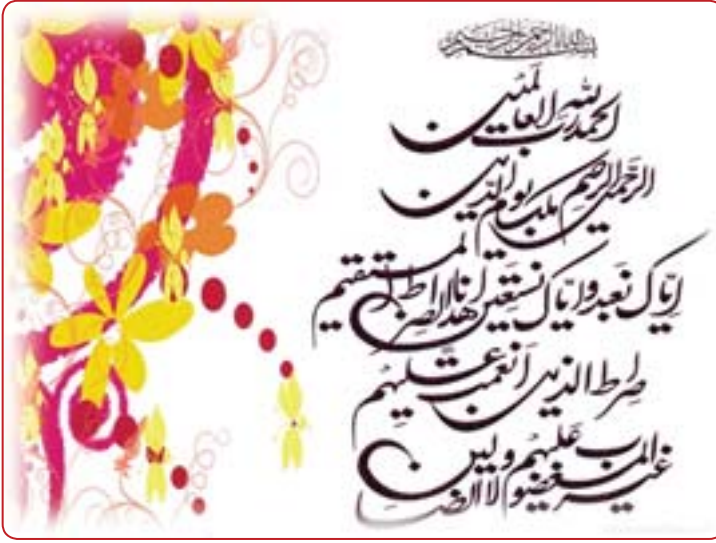 بسم الله الرحمن الرحیم
الحمد لله رب العالمین
الرحمن الرحیم ملک یوم الدین
ایاک نعبد و ایاک نستعین اهدنا الصراط المستقیم
صراط الذین انعمت علیهم
غیر المغضوب علیهم ولا الضالین